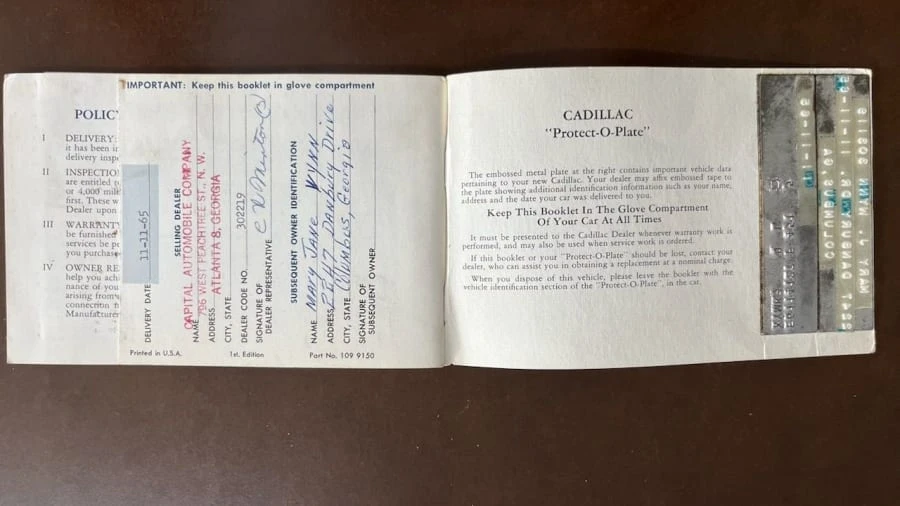 IMPORTANT: Keep this booklet in glove compartment
POLIC
I DELIVERY:
it has been in
delivery inspe
II INSPECTIO
are entitled t
or 4,000 mile
first. These w
Dealer upon
III WARRANT
be furnished
services be pe
you purchase
IV OWNER RE
help you ach
nance of you
arising from
connection
Manufacturer
DELIVERY DATE 11-11-65
SELLING DEALER
NAME CAPITAL AUTOMOBILE COMPANY
ADDRESS 796 WEST PEACHTREE ST., N. W.
CITY, STATE ATLANTA 8, GEORGIA
DEALER CODE NO. 302219
SIGNATURE OF
DEALER REPRESENTATIVE
SUBSEQUENT OWNER IDENTIFICATION
NAME MARY JANE WYNN
ADDRESS 2847 DANBURY DRIVE
CITY, STATE Columbus, Georgia
SIGNATURE OF
SUBSEQUENT OWNER
Printed in U.S.A. 1st. Edition Part No. 109 9150
CADILLAC
"Protect-O-Plate"
The embossed metal plate at the right contains important vehicle data
pertaining to your new Cadillac. Your dealer may affix embossed tape to
the plate showing additional identification information such as your name,
address and the date your car was delivered to you.
Keep This Booklet In The Glove Compartment
Of Your Car At All Times
It must be presented to the Cadillac Dealer whenever warranty work is
performed, and may also be used when service work is ordered.
If this booklet or your "Protect-O-Plate" should be lost, contact your
dealer, who can assist you in obtaining a replacement at a nominal charge.
When you dispose of this vehicle, please leave the booklet with the
vehicle identification section of the "Protect-O-Plate", in the car.